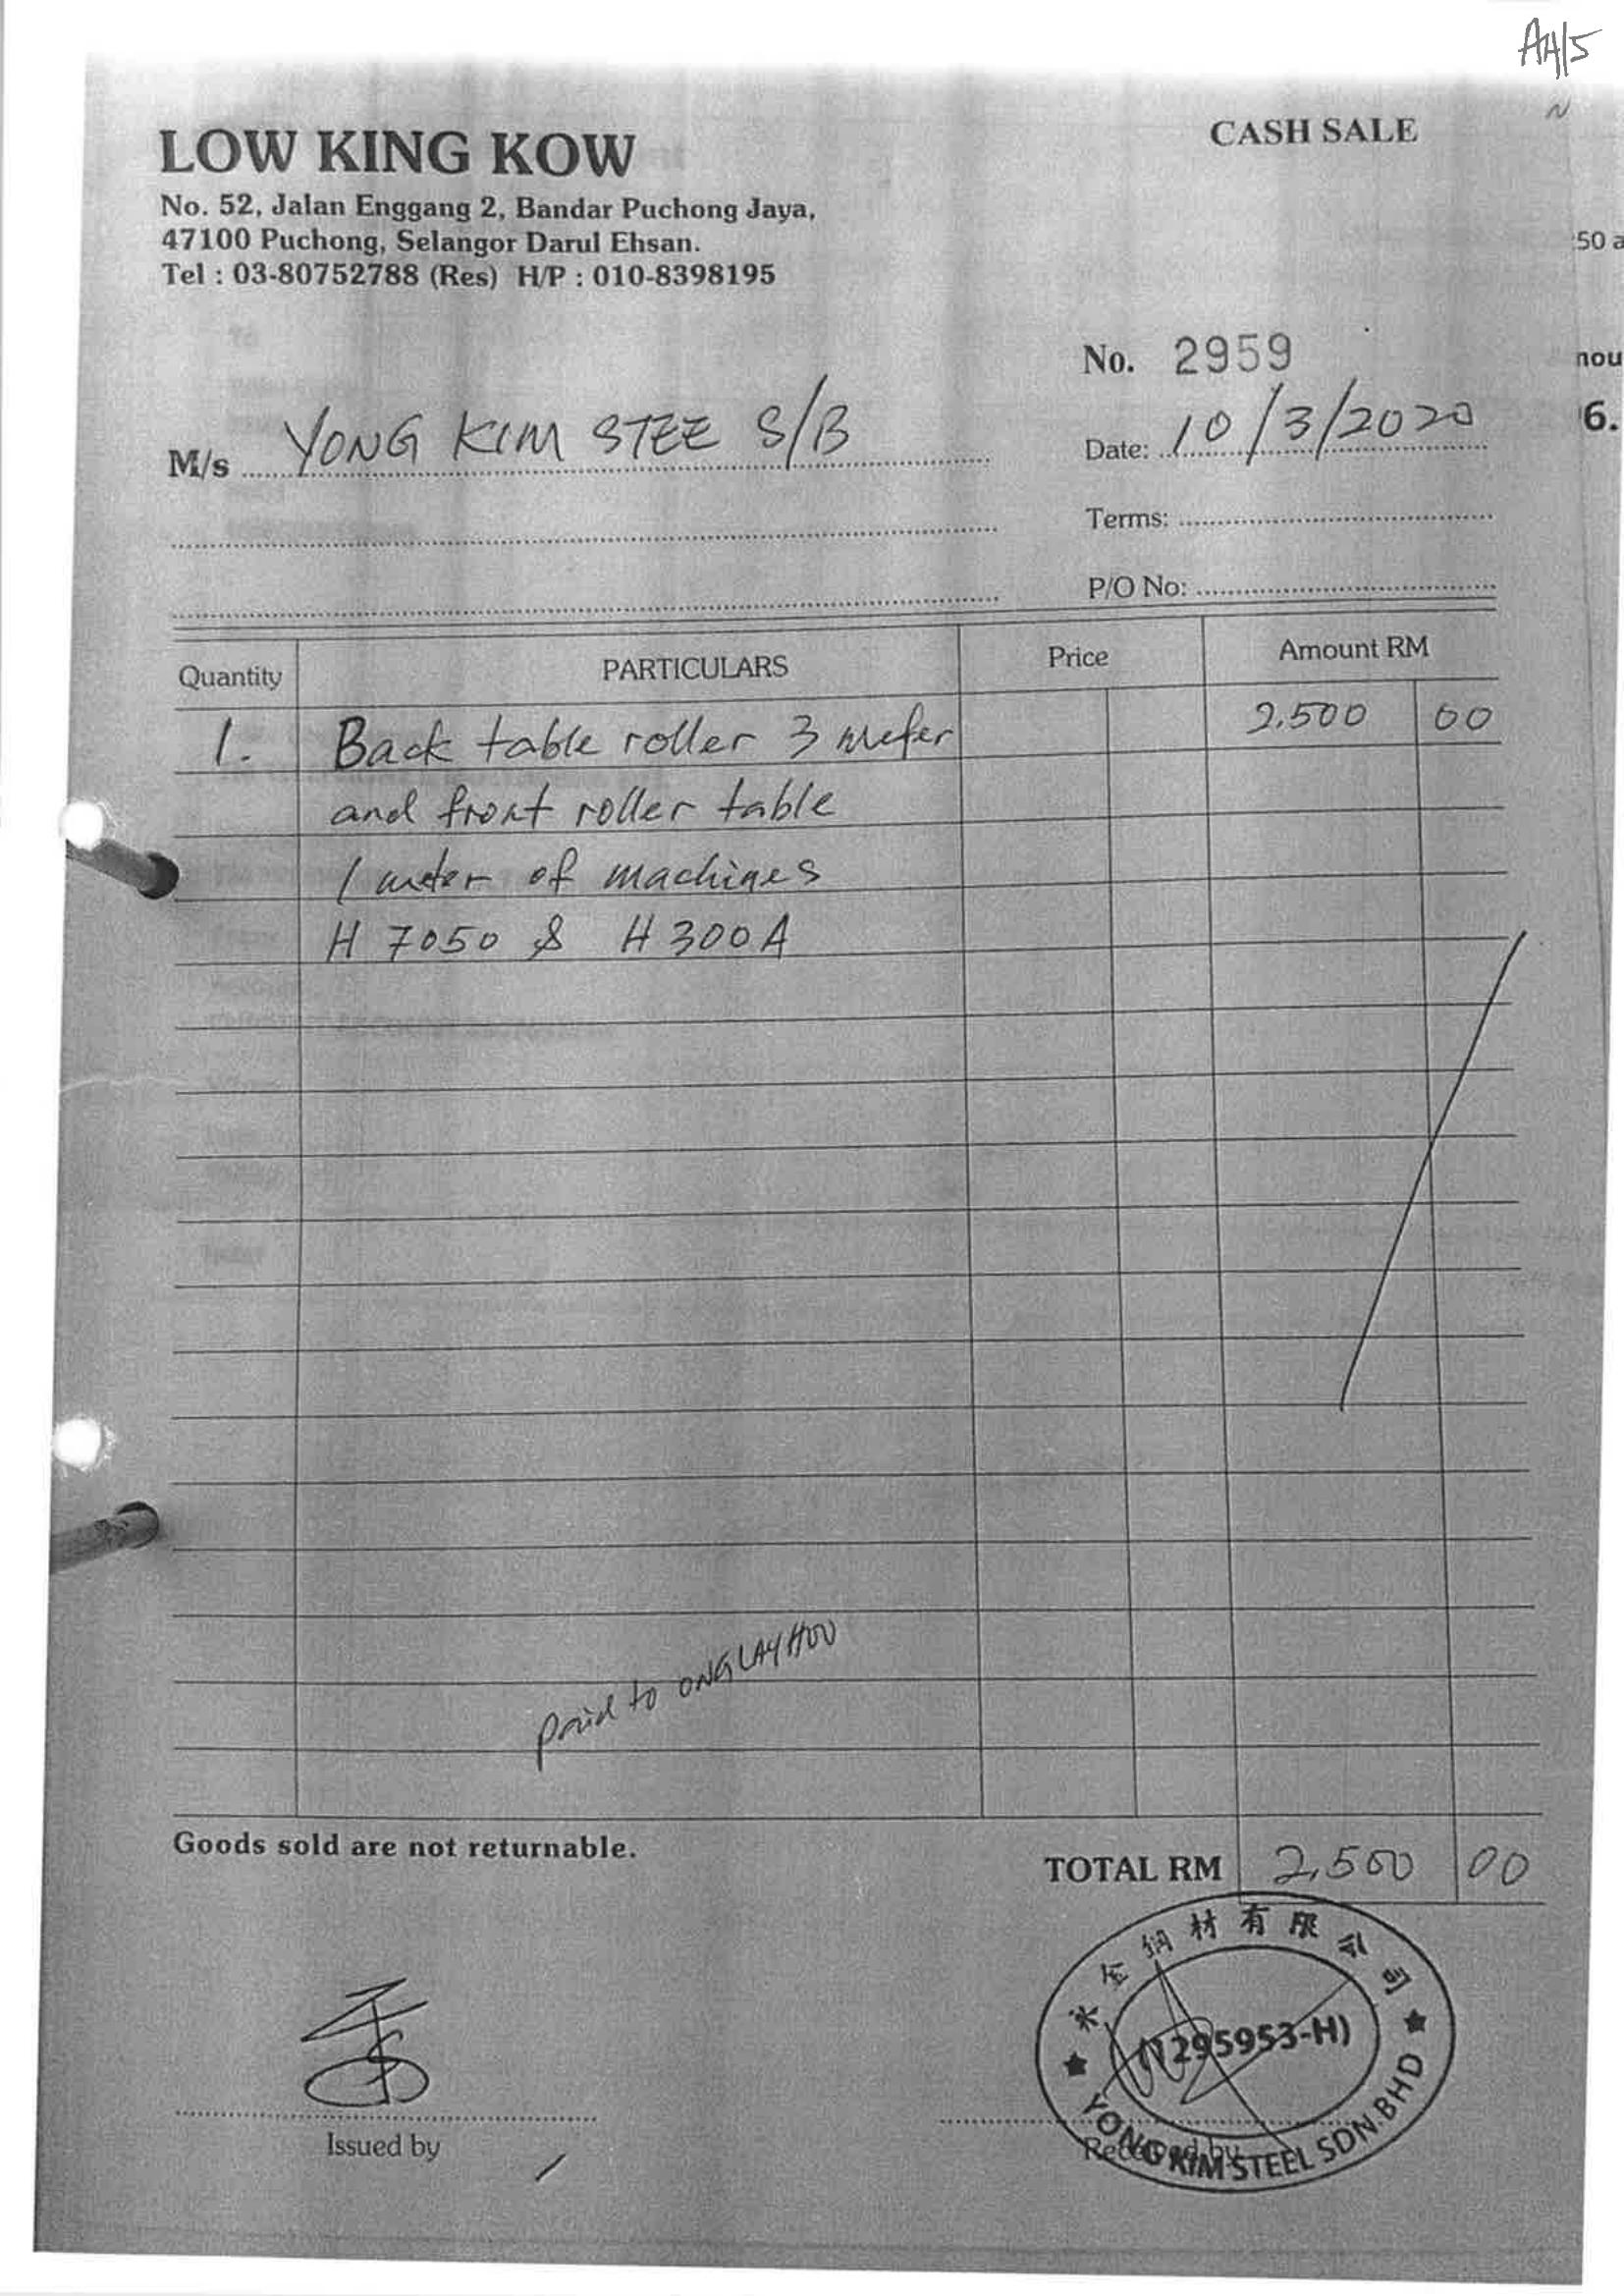 AA/5
CASH SALE
LOW KING KOW
No. 52, Jalan Enggang 2, Bandar Puchong Jaya,
47100 Puchong, Selangor Darul Ehsan.
Tel : 03-80752788 (Res) H/P : 010-8398195
50 a
No. 2959
nou
M/s YONG KIM STEE S/B
Date: 10/3/2020
6.
Terms:
P/O No:
Quantity PARTICULARS Price Amount RM
1. Back table roller 3 meter 2,500 00
and front roller table
1 meter of machines
H 7050 & H300A
paid to ONG LAY HOO
Goods sold are not returnable.
TOTAL RM 2,500 00
永金钢材有限公司
(1295953-H)
YONG KIM STEEL SDN. BHD
Issued by
Received by